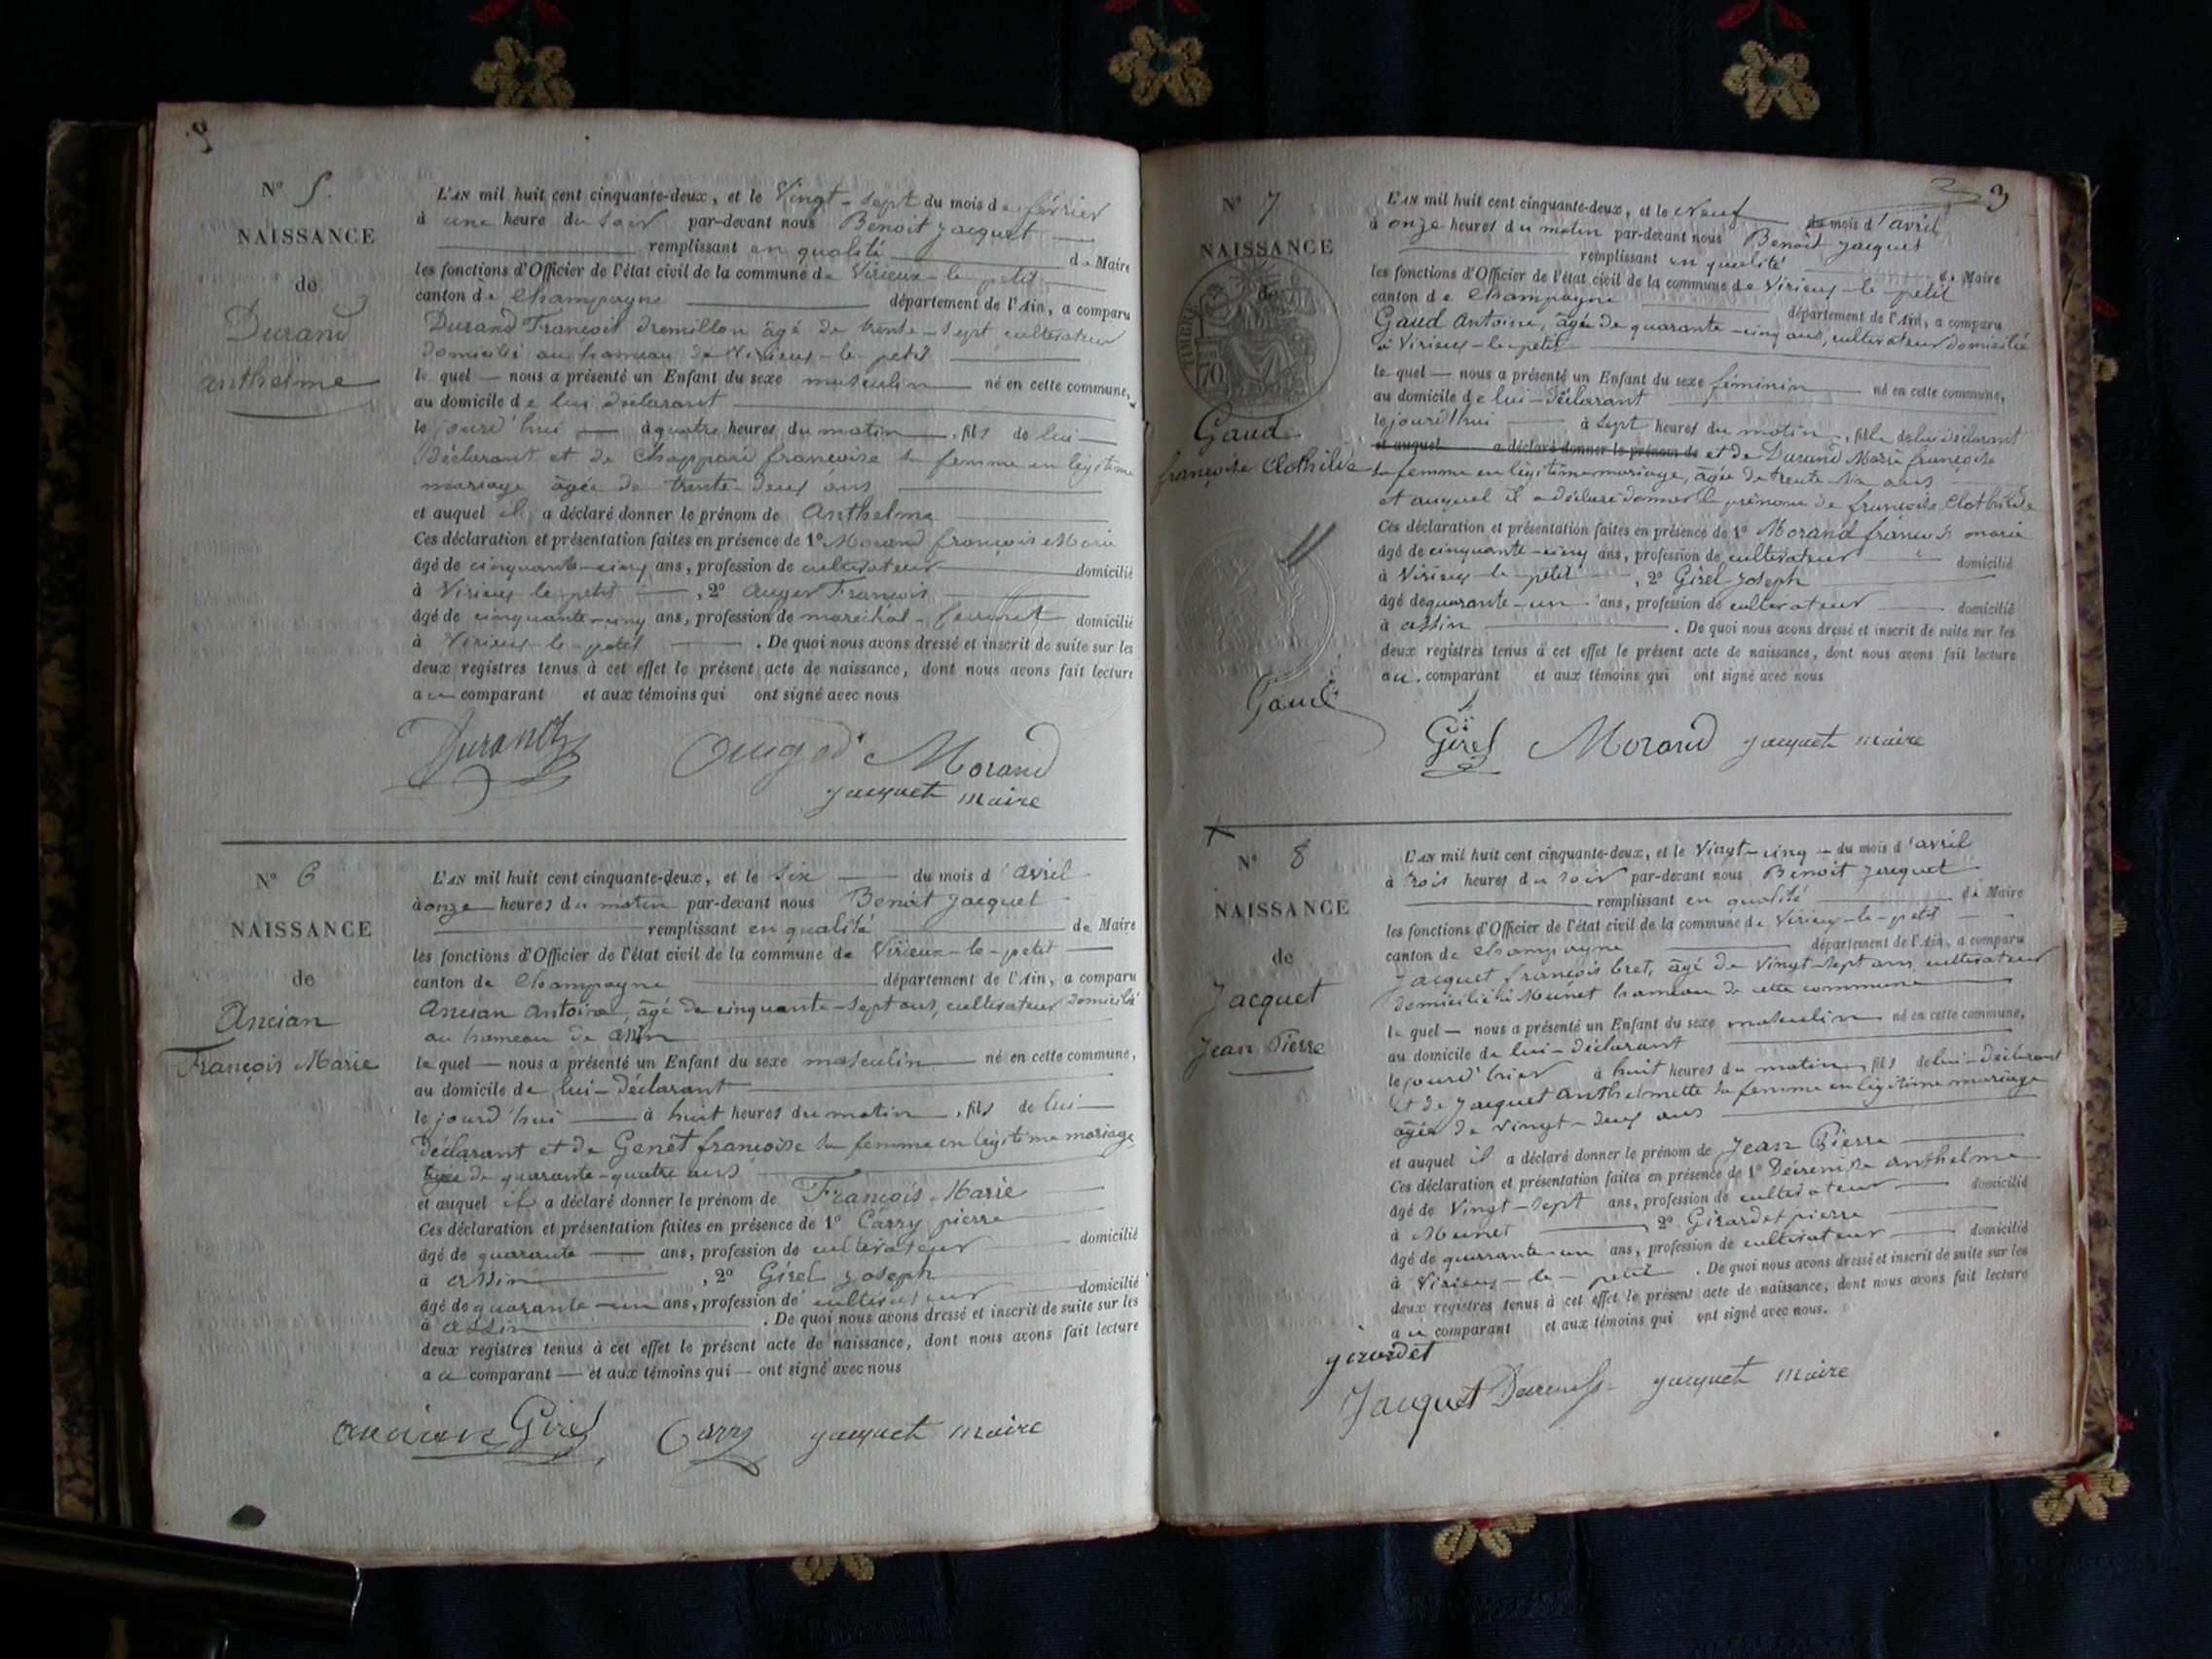 N° 5.
NAISSANCE
de
Durand
anthelme
L'AN mil huit cent cinquante-deux, et le Vingt-sept du mois de février
à une heure du soir par-devant nous Benoit Jacquet
remplissant en qualité de Maire
les fonctions d'Officier de l'état civil de la commune de Virieux-le-petit
canton de Champagne département de l'Ain, a comparu
Durand François dremillon âgé de trente-sept cultivateur
domicilié au hameau de Virieux-le-petit
le quel nous a présenté un Enfant du sexe masculin né en cette commune,
au domicile de lui déclarant
le jourd'hui à quatre heures du matin, fils de lui
Déclarant et de Chappard françoise sa femme en légitime
mariage âgée de trente-deux ans
et auquel il a déclaré donner le prénom de Anthelme
Ces déclaration et présentation faites en présence de 1° Morand françois Marie
âgé de cinquante-cinq ans, profession de cultivateur domicilié
à Virieux-le-petit, 2° Auger François
âgé de cinquante-cinq ans, profession de maréchal-ferrant domicilié
à Virieux-le-petit. De quoi nous avons dressé et inscrit de suite sur les
deux registres tenus à cet effet le présent acte de naissance, dont nous avons fait lecture
au comparant et aux témoins qui ont signé avec nous
Durand Morand
Jacquet maire
N° 6
NAISSANCE
de
Ancian
François Marie
L'AN mil huit cent cinquante-deux, et le six du mois d'avril
à onze heures du matin par-devant nous Benoit Jacquet
remplissant en qualité de Maire
les fonctions d'Officier de l'état civil de la commune de Virieux-le-petit
canton de Champagne département de l'Ain, a comparu
Ancian Antoine, âgé de cinquante-sept ans, cultivateur domicilié
au hameau de assin
le quel nous a présenté un Enfant du sexe masculin né en cette commune,
au domicile de lui-déclarant
le jourd'hui à huit heures du matin, fils de lui
Déclarant et de Genet françoise sa femme en légitime mariage
âgée de quarante-quatre ans
et auquel il a déclaré donner le prénom de François Marie
Ces déclaration et présentation faites en présence de 1° Carry pierre
âgé de quarante ans, profession de cultivateur domicilié
à assin, 2° Girel Joseph
âgé de quarante-un ans, profession de cultivateur domicilié
à assin. De quoi nous avons dressé et inscrit de suite sur les
deux registres tenus à cet effet le présent acte de naissance, dont nous avons fait lecture
au comparant et aux témoins qui ont signé avec nous
ancian Girel Carry Jacquet maire
3
N° 7
NAISSANCE
de
TIMBRE
70
Gaud
françoise Clothilde
L'AN mil huit cent cinquante-deux, et le Neuf du mois d'avril
à onze heures du matin par-devant nous Benoit Jacquet
remplissant en qualité de Maire
les fonctions d'Officier de l'état civil de la commune de Virieux-le-petit
canton de Champagne département de l'Ain, a comparu
Gaud Antoine, âgé de quarante-cinq ans, cultivateur domicilié
à Virieux-le-petit
le quel nous a présenté un Enfant du sexe féminin né en cette commune,
au domicile de lui-déclarant
le jourd'hui à sept heures du matin, fille de lui déclarant
et auquel a déclaré donner le prénom de et de Durand Marie françoise
sa femme en légitime mariage, âgée de trente-six ans
et auquel il a déclaré donner le prénom de françoise Clothilde
Ces déclaration et présentation faites en présence de 1° Morand françois marie
âgé de cinquante-cinq ans, profession de cultivateur domicilié
à Virieux-le-petit, 2° Girel Joseph
âgé de quarante-un ans, profession de cultivateur domicilié
à assin. De quoi nous avons dressé et inscrit de suite sur les
deux registres tenus à cet effet le présent acte de naissance, dont nous avons fait lecture
au comparant et aux témoins qui ont signé avec nous
Gaud
Girel Morand Jacquet maire
N° 8
NAISSANCE
de
Jacquet
Jean Pierre
L'AN mil huit cent cinquante-deux, et le Vingt-cinq du mois d'avril
à trois heures du soir par-devant nous Benoit Jacquet
remplissant en qualité de Maire
les fonctions d'Officier de l'état civil de la commune de Virieux-le-petit
canton de Champagne département de l'Ain, a comparu
Jacquet françois bret, âgé de vingt-sept ans cultivateur
domicilié à Munet hameau de cette commune
le quel nous a présenté un Enfant du sexe masculin né en cette commune,
au domicile de lui-déclarant
le jourd'hier à huit heures du matin, fils de lui-déclarant
et de Jacquet Anthelmette sa femme en légitime mariage
âgée de vingt-deux ans
et auquel il a déclaré donner le prénom de Jean Pierre
Ces déclaration et présentation faites en présence de 1° anthelme
âgé de Vingt-sept ans, profession de cultivateur domicilié
à Munet, 2° Girardet pierre
âgé de quarante-un ans, profession de cultivateur domicilié
à Virieux-le-petit. De quoi nous avons dressé et inscrit de suite sur les
deux registres tenus à cet effet le présent acte de naissance, dont nous avons fait lecture
au comparant et aux témoins qui ont signé avec nous.
girardet
Jacquet Jacquet maire